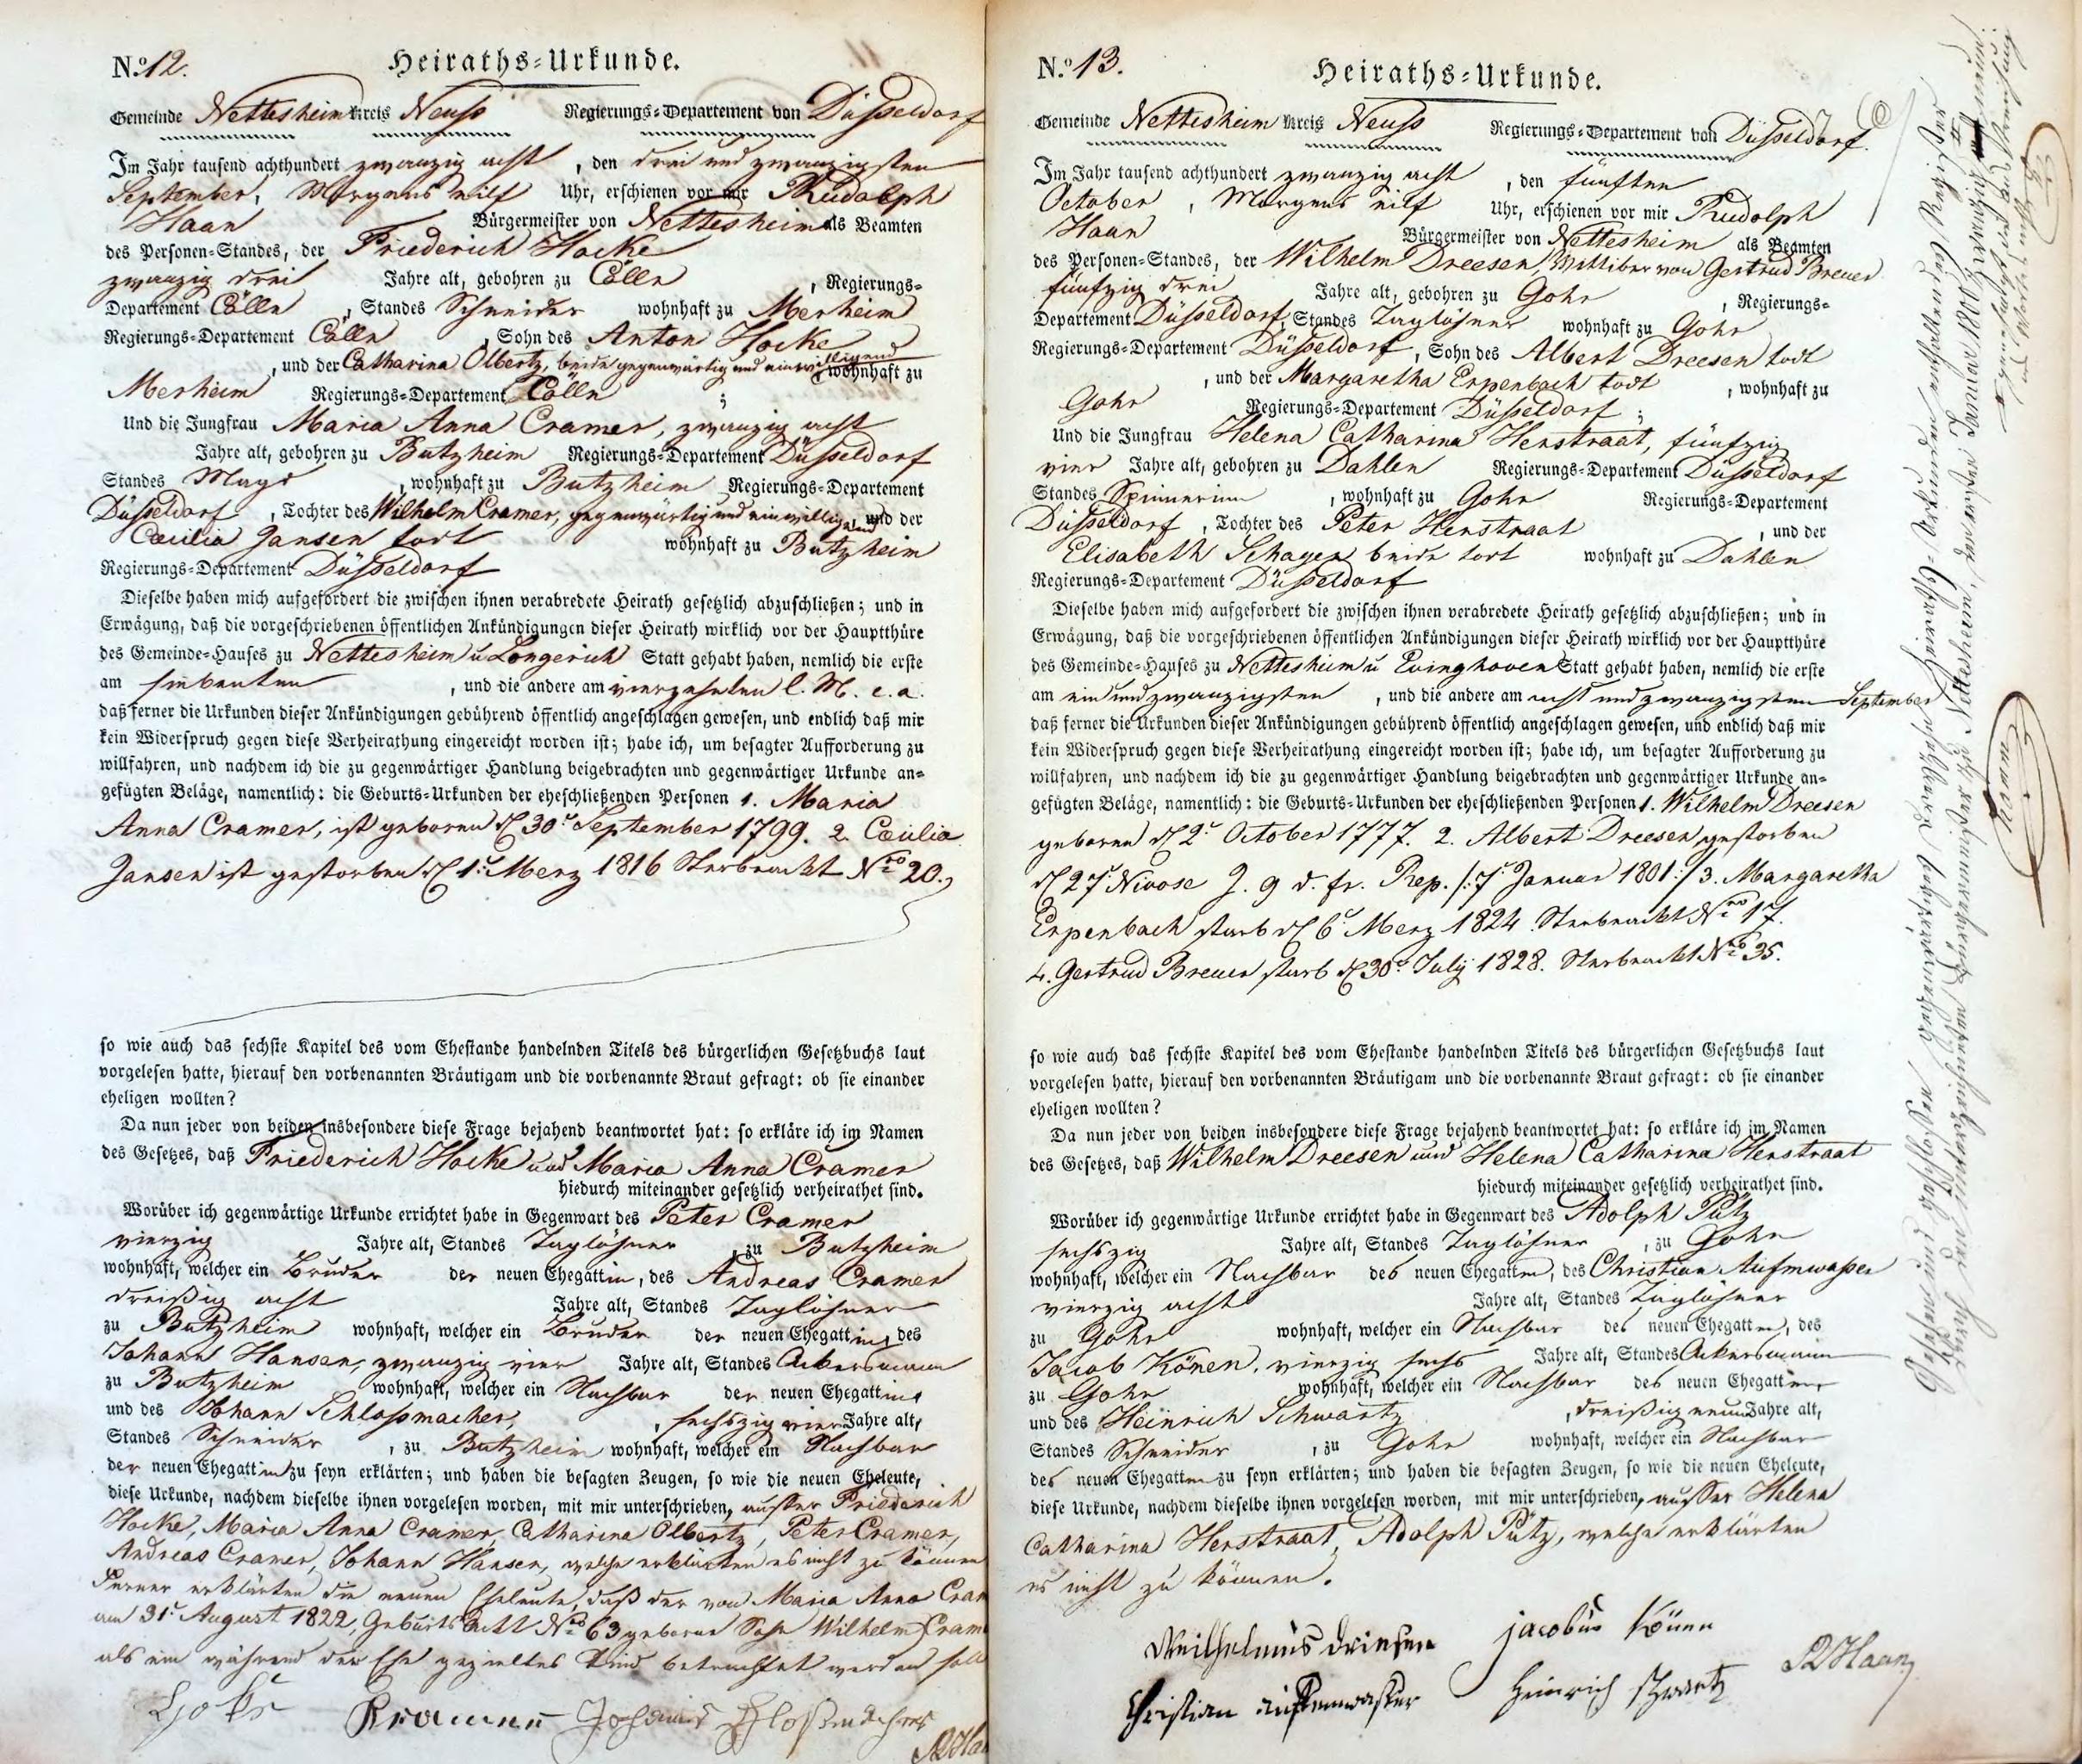 No. 12.
Heiraths-Urkunde.
Gemeinde Nettesheim Kreis Neuss Regierungs-Departement von Düsseldorf
Im Jahr tausend achthundert zwanzig acht, den drei und zwanzigsten
September, Morgens eilf Uhr, erschienen vor mir Rudolph
Haan Bürgermeister von Nettesheim als Beamten
des Personen-Standes, der Friederich Hocke
zwanzig drei Jahre alt, gebohren zu Cölln, Regierungs-
Departement Cölln, Standes Schneider wohnhaft zu Merheim
Regierungs-Departement Cölln, Sohn des Anton Hocke
, und der Catharina Olbertz, beide gegenwärtig und einwilligend wohnhaft zu
Merheim Regierungs-Departement Cölln ;
Und die Jungfrau Maria Anna Cramer, zwanzig acht
Jahre alt, gebohren zu Butzheim Regierungs-Departement Düsseldorf
Standes Magd, wohnhaft zu Butzheim Regierungs-Departement
Düsseldorf, Tochter des Wilhelm Cramer, gegenwärtig und einwilligend und der
Cæcilia Jansen todt wohnhaft zu Butzheim
Regierungs-Departement Düsseldorf
Dieselbe haben mich aufgefordert die zwischen ihnen verabredete Heirath gesetzlich abzuschließen; und in
Erwägung, daß die vorgeschriebenen öffentlichen Ankündigungen dieser Heirath wirklich vor der Hauptthüre
des Gemeinde-Hauses zu Nettesheim u Longerich Statt gehabt haben, nemlich die erste
am siebenten, und die andere am vierzehnten l. M. c. a.
daß ferner die Urkunden dieser Ankündigungen gebührend öffentlich angeschlagen gewesen, und endlich daß mir
kein Widerspruch gegen diese Verheirathung eingereicht worden ist; habe ich, um besagter Aufforderung zu
willfahren, und nachdem ich die zu gegenwärtiger Handlung beigebrachten und gegenwärtiger Urkunde an-
gefügten Beläge, namentlich: die Geburts-Urkunden der eheschließenden Personen 1. Maria
Anna Cramer, ist geboren d 30t September 1799. 2. Cæcilia
Jansen ist gestorben d 1t Merz 1816 Sterbeackt Nro 20.
so wie auch das sechste Kapitel des vom Ehestande handelnden Titels des bürgerlichen Gesetzbuchs laut
vorgelesen hatte, hierauf den vorbenannten Bräutigam und die vorbenannte Braut gefragt: ob sie einander
eheligen wollten?
Da nun jeder von beiden insbesondere diese Frage bejahend beantwortet hat: so erkläre ich im Namen
des Gesetzes, daß Friederich Hocke und Maria Anna Cramer
hiedurch miteinander gesetzlich verheirathet sind.
Worüber ich gegenwärtige Urkunde errichtet habe in Gegenwart des Peter Cramer
vierzig Jahre alt, Standes Taglöhner, zu Butzheim
wohnhaft, welcher ein Bruder der neuen Ehegattin, des Andreas Cramer
dreißig acht Jahre alt, Standes Taglöhner
zu Butzheim wohnhaft, welcher ein Bruder der neuen Ehegattin, des
Johann Hansen, zwanzig vier Jahre alt, Standes Ackersmann
zu Butzheim wohnhaft, welcher ein Nachbar der neuen Ehegattin,
und des Johann Schlossmacher, sechszig vier Jahre alt,
Standes Schneider, zu Butzheim wohnhaft, welcher ein Nachbar
der neuen Ehegattin zu seyn erklärten; und haben die besagten Zeugen, so wie die neuen Eheleute,
diese Urkunde, nachdem dieselbe ihnen vorgelesen worden, mit mir unterschrieben, ausser Friederich
Hocke, Maria Anna Cramer, Catharina Olbertz, Peter Cramer,
Andreas Cramer, Johann Hansen, welche erklärten es nicht zu können
Ferner erklärten die neuen Eheleute, daß der von Maria Anna Cram
am 31t August 1822, Geburts Ackt Nro 63 geborne Sohn Wilhelm Cram
als ein während der Ehe gezieltes Kind betrachtet werden soll
Kramer Johannes Schlossmacher
RHaa
No. 13.
Heiraths-Urkunde.
Gemeinde Nettesheim Kreis Neuss Regierungs-Departement von Düsseldorf.
Im Jahr tausend achthundert zwanzig acht, den fünften
October, Morgens eilf Uhr, erschienen vor mir Rudolph
Haan Bürgermeister von Nettesheim als Beamten
des Personen-Standes, der Wilhelm Dreesen, Wittiber von Gertrud Breuer
fünfzig drei Jahre alt, gebohren zu Gohr, Regierungs-
Departement Düsseldorf, Standes Taglöhner wohnhaft zu Gohr
Regierungs-Departement Düsseldorf, Sohn des Albert Dreesen todt
, und der Margaretha Erpenbach todt, wohnhaft zu
Gohr Regierungs-Departement Düsseldorf ;
Und die Jungfrau Helena Catharina Herstraat, fünfzig
vier Jahre alt, gebohren zu Dahlen Regierungs-Departement Düsseldorf
Standes Spinnerinn, wohnhaft zu Gohr Regierungs-Departement
Düsseldorf, Tochter des Peter Herstraat, und der
Elisabeth Schagen beide todt wohnhaft zu Dahlen
Regierungs-Departement Düsseldorf
Dieselbe haben mich aufgefordert die zwischen ihnen verabredete Heirath gesetzlich abzuschließen; und in
Erwägung, daß die vorgeschriebenen öffentlichen Ankündigungen dieser Heirath wirklich vor der Hauptthüre
des Gemeinde-Hauses zu Nettesheim u Evinghoven Statt gehabt haben, nemlich die erste
am ein und zwanzigsten, und die andere am acht und zwanzigsten September
daß ferner die Urkunden dieser Ankündigungen gebührend öffentlich angeschlagen gewesen, und endlich daß mir
kein Widerspruch gegen diese Verheirathung eingereicht worden ist; habe ich, um besagter Aufforderung zu
willfahren, und nachdem ich die zu gegenwärtiger Handlung beigebrachten und gegenwärtiger Urkunde an-
gefügten Beläge, namentlich: die Geburts-Urkunden der eheschließenden Personen 1. Wilhelm Dreesen
geboren d 2t October 1777. 2. Albert Dreesen gestorben
d 27t Nivose J. 9 d. fr. Rep. /:7t Januar 1801:/ 3. Margaretha
Erpenbach starb d 6t Merz 1824 Sterbeackt Nro 17.
4. Gertrud Breuer starb d 30t July 1828. Sterbeackt Nro 35.
so wie auch das sechste Kapitel des vom Ehestande handelnden Titels des bürgerlichen Gesetzbuchs laut
vorgelesen hatte, hierauf den vorbenannten Bräutigam und die vorbenannte Braut gefragt: ob sie einander
eheligen wollten?
Da nun jeder von beiden insbesondere diese Frage bejahend beantwortet hat: so erkläre ich im Namen
des Gesetzes, daß Wilhelm Dreesen und Helena Catharina Herstraat
hiedurch miteinander gesetzlich verheirathet sind.
Worüber ich gegenwärtige Urkunde errichtet habe in Gegenwart des Adolph Pütz
sechszig Jahre alt, Standes Taglöhner, zu Gohr
wohnhaft, welcher ein Nachbar des neuen Ehegatten, des Christian Aufmwasser
vierzig acht Jahre alt, Standes Taglöhner
zu Gohr wohnhaft, welcher ein Nachbar des neuen Ehegatten, des
Jacob Könen, vierzig sechs Jahre alt, Standes Ackersmann
zu Gohr wohnhaft, welcher ein Nachbar des neuen Ehegatten
und des Heinrich Schwartz, dreißig neun Jahre alt,
Standes Schneider, zu Gohr wohnhaft, welcher ein Nachbar
des neuen Ehegatten zu seyn erklärten; und haben die besagten Zeugen, so wie die neuen Eheleute,
diese Urkunde, nachdem dieselbe ihnen vorgelesen worden, mit mir unterschrieben, ausser Helena
Catharina Herstraat, Adolph Pütz, welche erklärten
es nicht zu können.
Weilhelmus driesen jacobus Könen
RHaan
Christian aufemwasser Heinrich schwartz
Gesehen und geschlossen gegenwärtiges dreizehn Heiraths-Urkunden enthaltendes Register
durch den unterzeichneten Bürgermeister zu Nettesheim, den ersten Januar 1800 zwanzig neun.
Haan